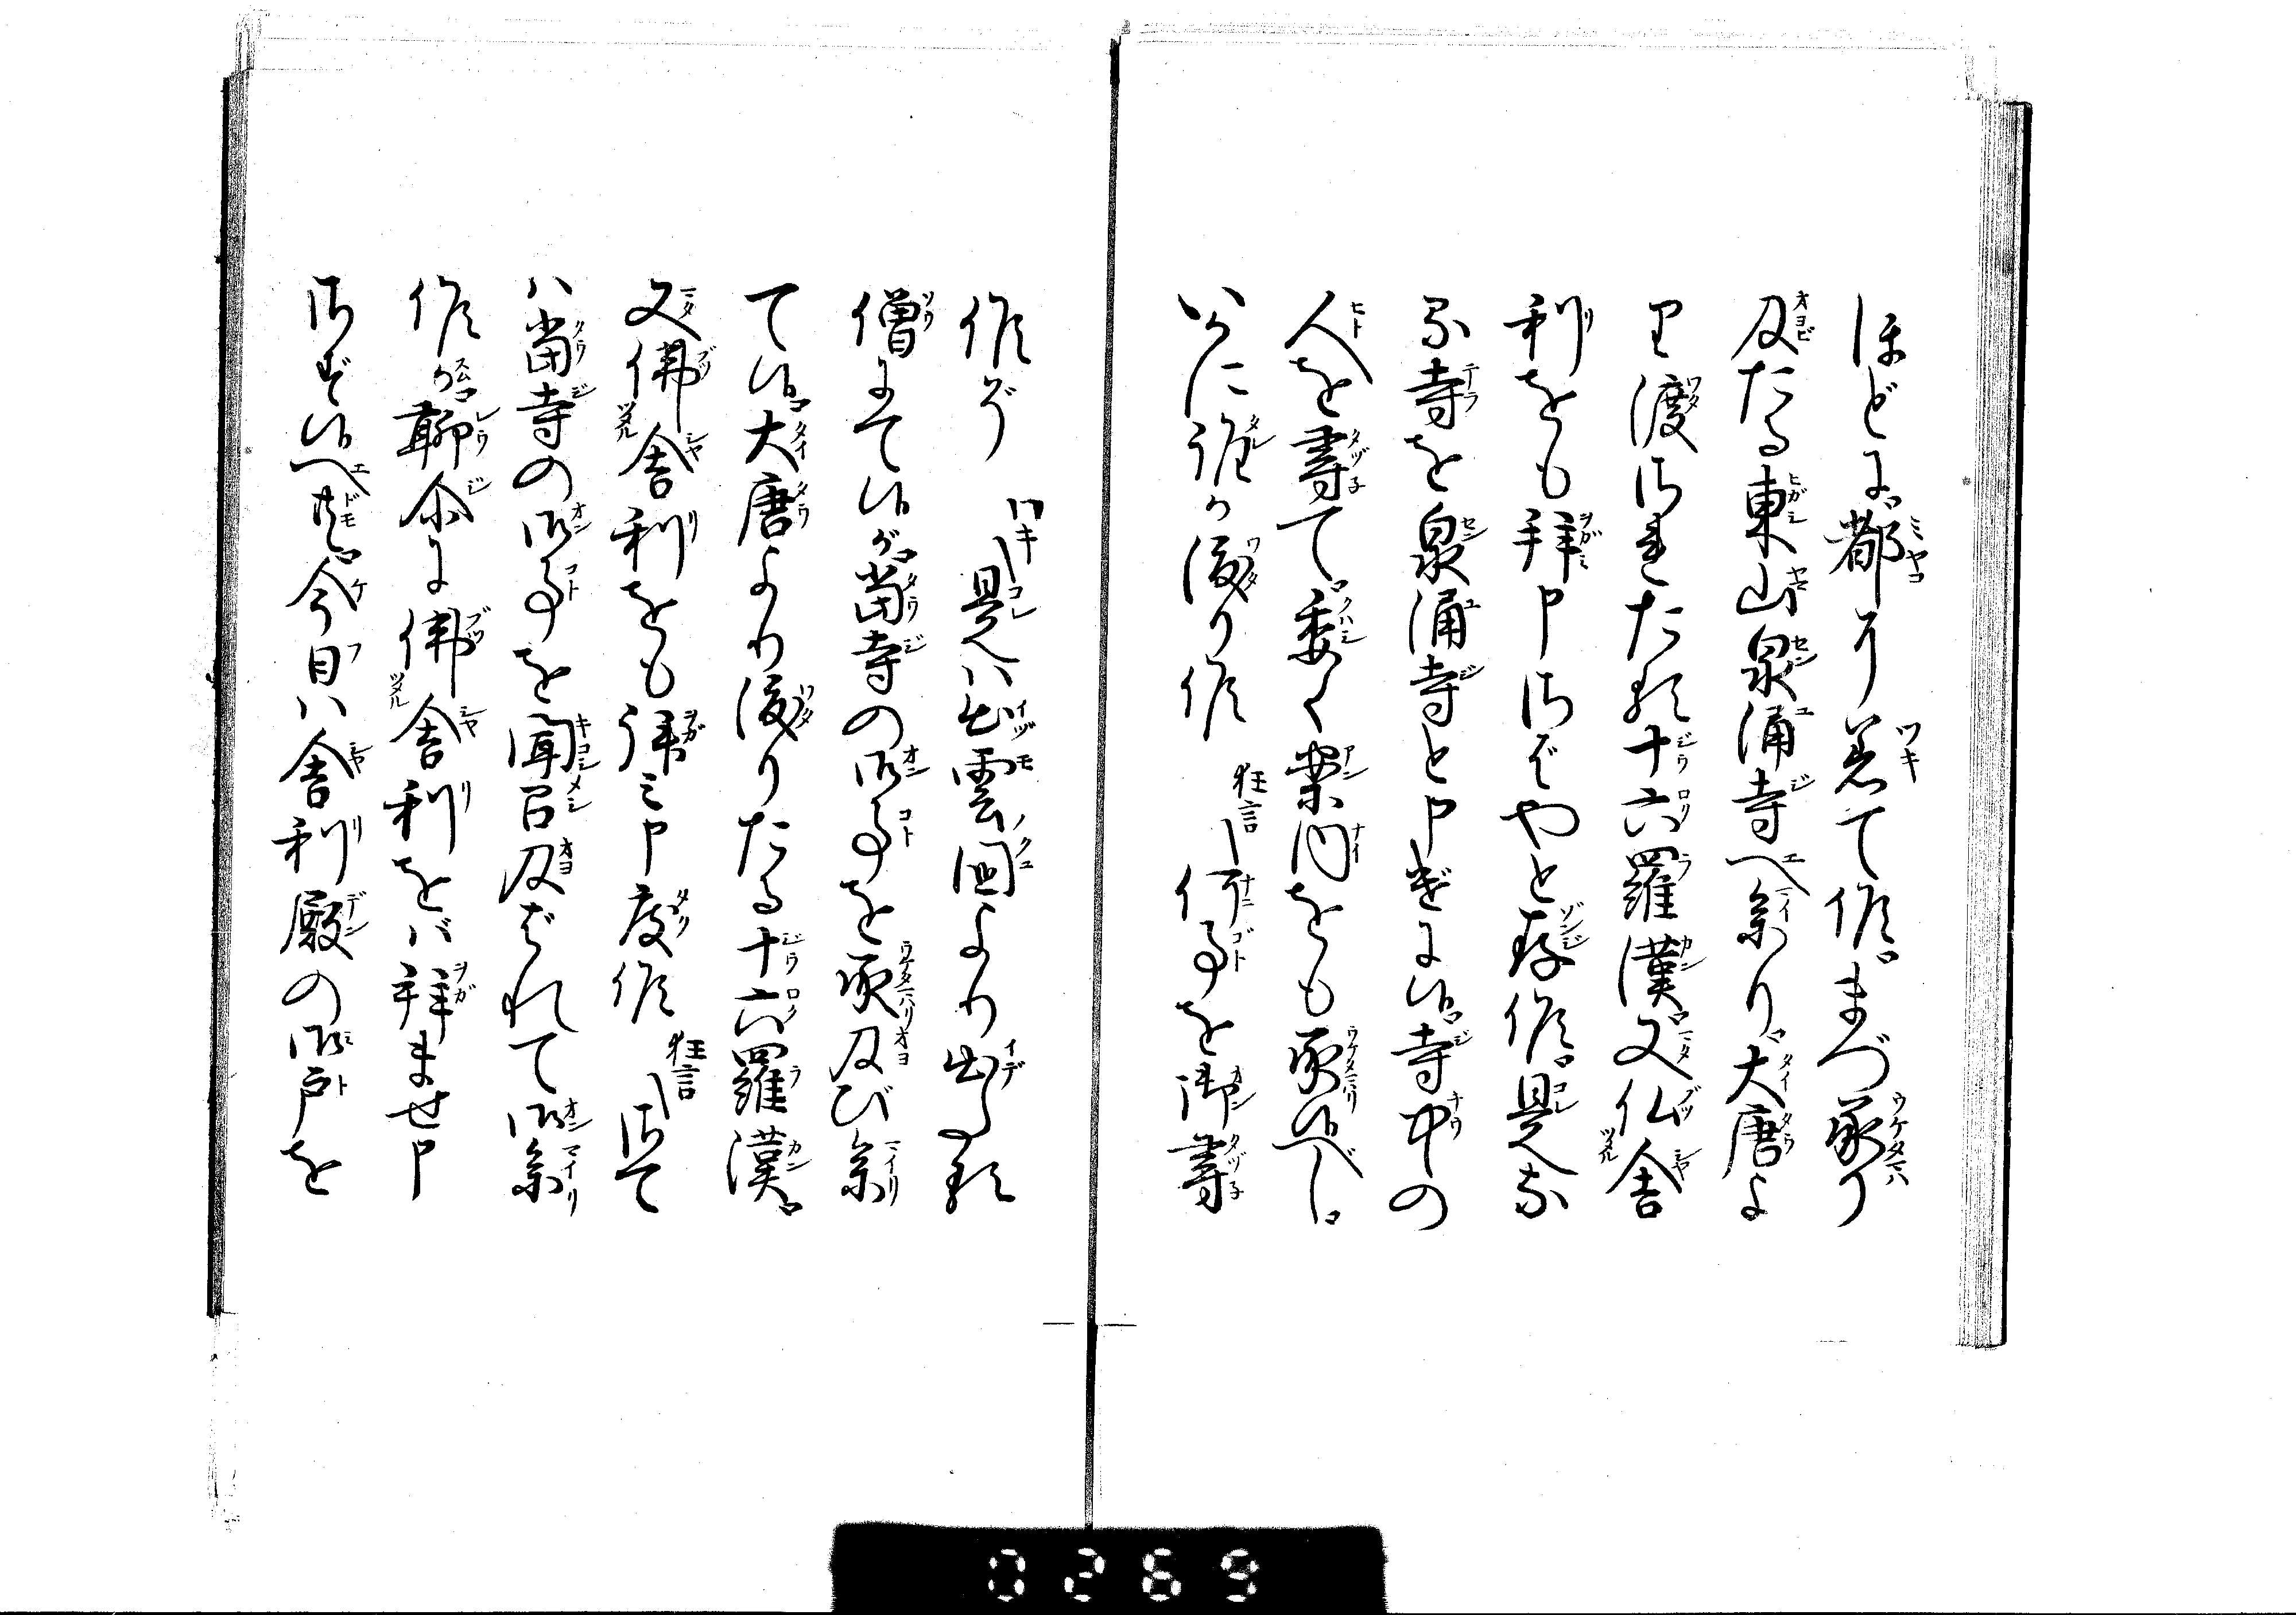 ほどに都に着て候まづ承り
及たる東山泉涌寺へ参り大唐よ
り渡されたる十六羅漢又仏舎
利をも拝申さばやと存候是な
る寺を泉涌寺と申げに候寺中の
人を尋て委く案内をも承候べし
いかに誰か渡り候 狂言 何事を御尋
候ぞ ワキ 是ハ出雲国より出たる
僧にて候が当寺の御事を承及び参
て候大唐より渡りたる十六羅漢
又佛舎利をも拝ミ申度候 狂言 さて
ハ当寺の御事を聞召及ばれて御参
候か聊尓に佛舎利をバ拝ませ申
さず候へ共今日ハ舎利殿の御戸を
0269